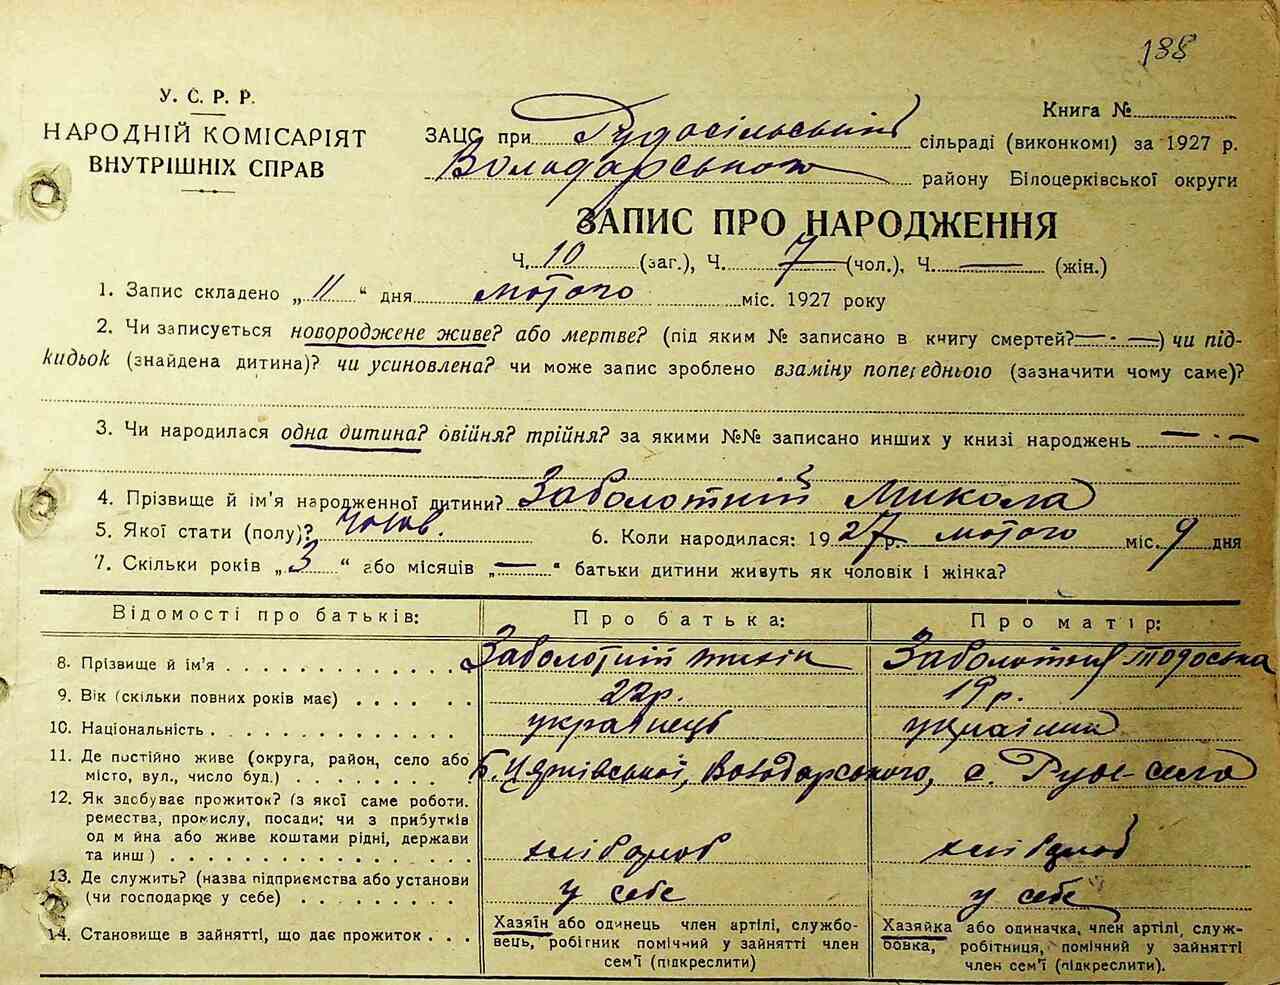 188
У. С. Р. Р.
НАРОДНІЙ КОМІСАРІЯТ
ВНУТРІШНІХ СПРАВ
Книга №
ЗАЦС при Рудосільський сільраді (виконкомі) за 1927 р.
Володарського району Білоцерківської округи
ЗАПИС ПРО НАРОДЖЕННЯ
Ч. 10 (заг.), Ч. 7 (чол.), Ч. — (жін.)
1. Запис складено „ 11 “ дня лютого міс. 1927 року
2. Чи записується новороджене живе? або мертве? (під яким № записано в книгу смертей? — · —) чи під-
кидьок (знайдена дитина)? чи усиновлена? чи може запис зроблено взаміну попереднього (зазначити чому саме)?
3. Чи народилася одна дитина? двійня? трійня? за якими №№ записано инших у книзі народжень — · —
4. Прізвище й ім'я народженної дитини? Заболотній Микола
5. Якої стати (полу)? чолов. 6. Коли народилася: 1927 р. лютого міс. 9 дня
7. Скільки років „ 3 “ або місяців „ — “ батьки дитини живуть як чоловік і жінка?
Відомості про батьків: Про батька: Про матір:
8. Прізвище й ім'я Заболотній Заболотня Тодоська
9. Вік (скільки повних років має) 22 р. 19 р.
10. Національність українець українка
11. Де постійно живе (округа, район, село або
місто, вул., число буд.) Б. Церківської, Володарського, с. Руде-село
12. Як здобуває прожиток? (з якої саме роботи.
ремества, промислу, посади; чи з прибутків
од майна або живе коштами рідні, держави
та инш) хлібороб хлібороб
13. Де служить? (назва підприємства або установи
(чи господарює у себе) у себе у себе
14. Становище в зайнятті, що дає прожиток Хазяїн або одинець член артілі, службо-
вець, робітник помічний у зайнятті член
сем'ї (підкреслити)
Хазяйка або одиначка, член артілі, служ-
бовка, робітниця, помічний у зайнятті
член сем'ї (підкреслити).